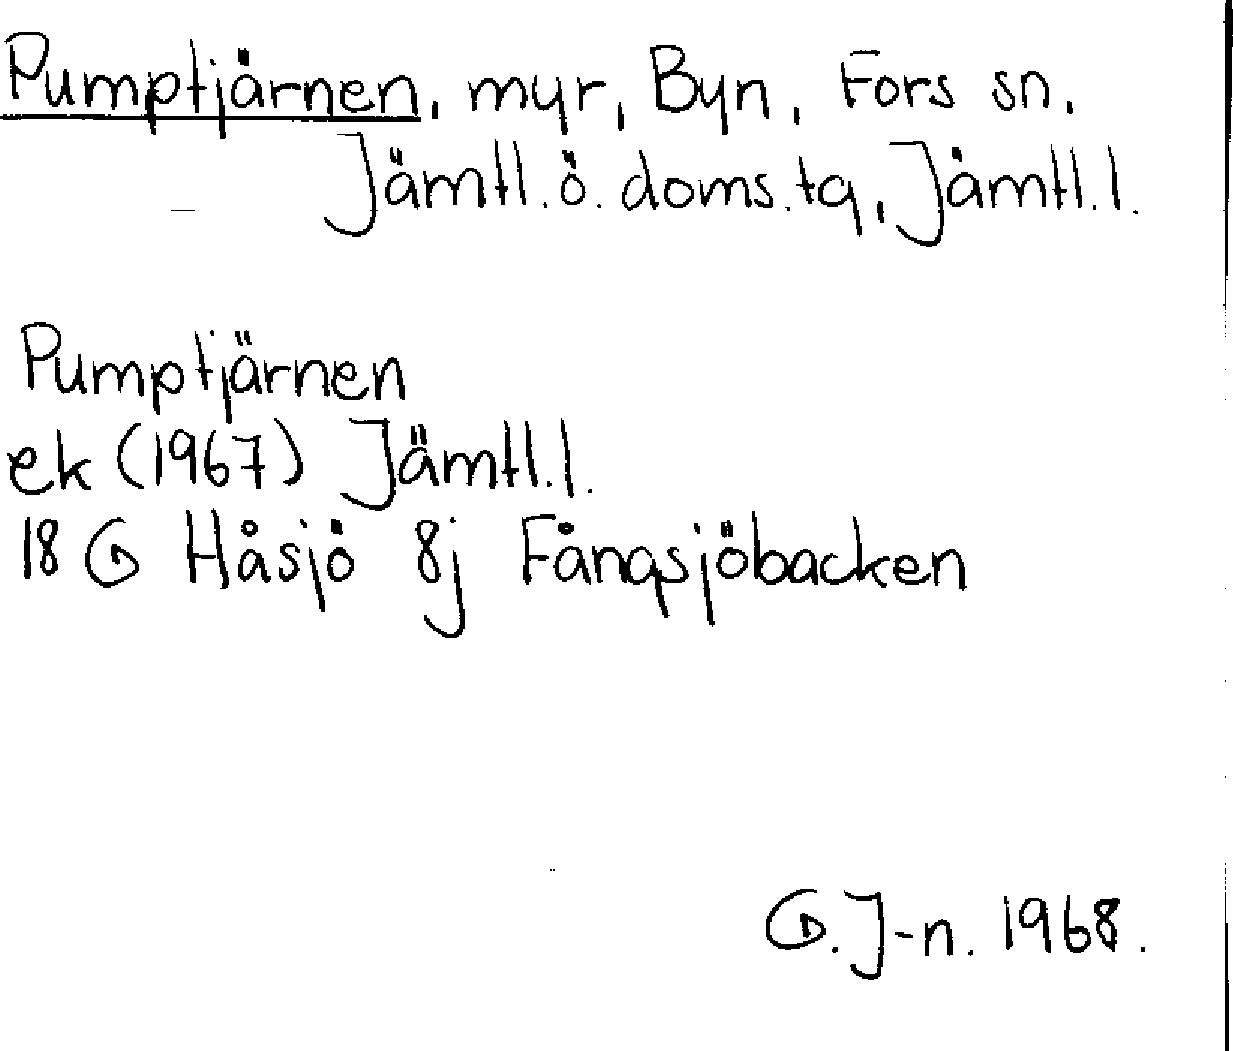 Pumptjärnen, myr, Byn, Fors sn.
Jämtl. ö. doms. tg, Jämtl. l.
Pumptjärnen
ek (1967) Jämtl. l.
18 G Håsjö 8j Fångsjöbacken
G. J-n. 1968.